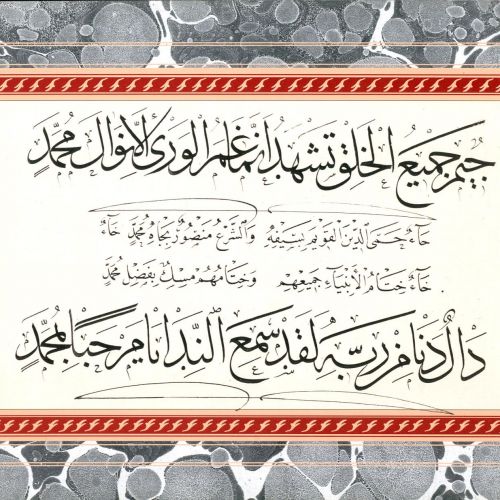 جيم جميع الخلق تشهد انما علم الورى لانوال محمد
حاء حمى الدين القويم بسيفه والشرع منصور بجاه محمد خاء
خاء ختام الأنبياء جميعهم وختامهم مسك بفضل محمد
دال دنا من ربه لقد سمع الندا يا مرحبا بمحمد